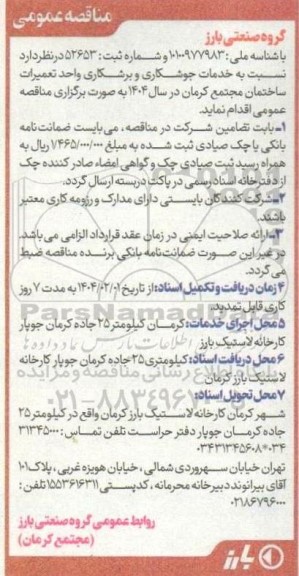 مناقصه عمومی
گروه صنعتی بارز
با شناسه ملی : ۱۰۱۰۰۹۷۷۹۸۳ و شماره ثبت : ۵۲۶۵۳ در نظر دارد
نسبت به خدمات جوشکاری و برشکاری واحد تعمیرات
ساختمان مجتمع کرمان در سال ۱۴۰۴ به صورت برگزاری مناقصه
عمومی اقدام نماید.
۱- بابت تضامین شرکت در مناقصه ، می بایست ضمانت نامه
بانکی یا چک صیادی ثبت شده به مبلغ ۷/۴۶۵/۰۰۰/۰۰۰ ریال به
همراه رسید ثبت صیادی چک و گواهی امضاء صادر کننده چک
از دفترخانه اسناد رسمی در پاکت دربسته ارسال گردد.
۲- شرکت کنندگان بایستی دارای مدارک و رزومه کاری معتبر
باشند.
۳- ارائه صلاحیت ایمنی در زمان عقد قرارداد الزامی می باشد.
در غیر این صورت ضمانت نامه بانکی برنده مناقصه ضبط
می گردد.
۴ زمان دریافت و تکمیل اسناد: از تاریخ ۱۴۰۴/۰۲/۰۱ به مدت ۷ روز
کاری قابل تمدید.
۵ محل اجرای خدمات: کرمان کیلومتر ۲۵ جاده کرمان جوپار
کارخانه لاستیک بارز
۶ محل دریافت اسناد: کیلومتری ۲۵ جاده کرمان جوپار کارخانه
لاستیک بارز کرمان
۷ محل تحویل اسناد:
شهر کرمان کارخانه لاستیک بارز کرمان واقع در کیلومتر ۲۵
جاده کرمان جوپار دفتر حراست تلفن تماس : ۳۱۳۴۵۰۰۰
۰۳۴*۰۳۴۳۱۳۴۵۶۰۸
تهران خیابان سهروردی شمالی ، خیابان هویزه غربی ، پلاک ۱۰۱
آقای بیرانوند دبیرخانه محرمانه ، کدپستی ۱۵۵۳۶۱۶۳۱۱ تلفن :
۰۲۱۸۶۷۹۶۰۰۰
روابط عمومی گروه صنعتی بارز
(مجتمع کرمان)
بارز
ParsNamadData
۰۲۱-۸۸۳۴۹۶۷۰